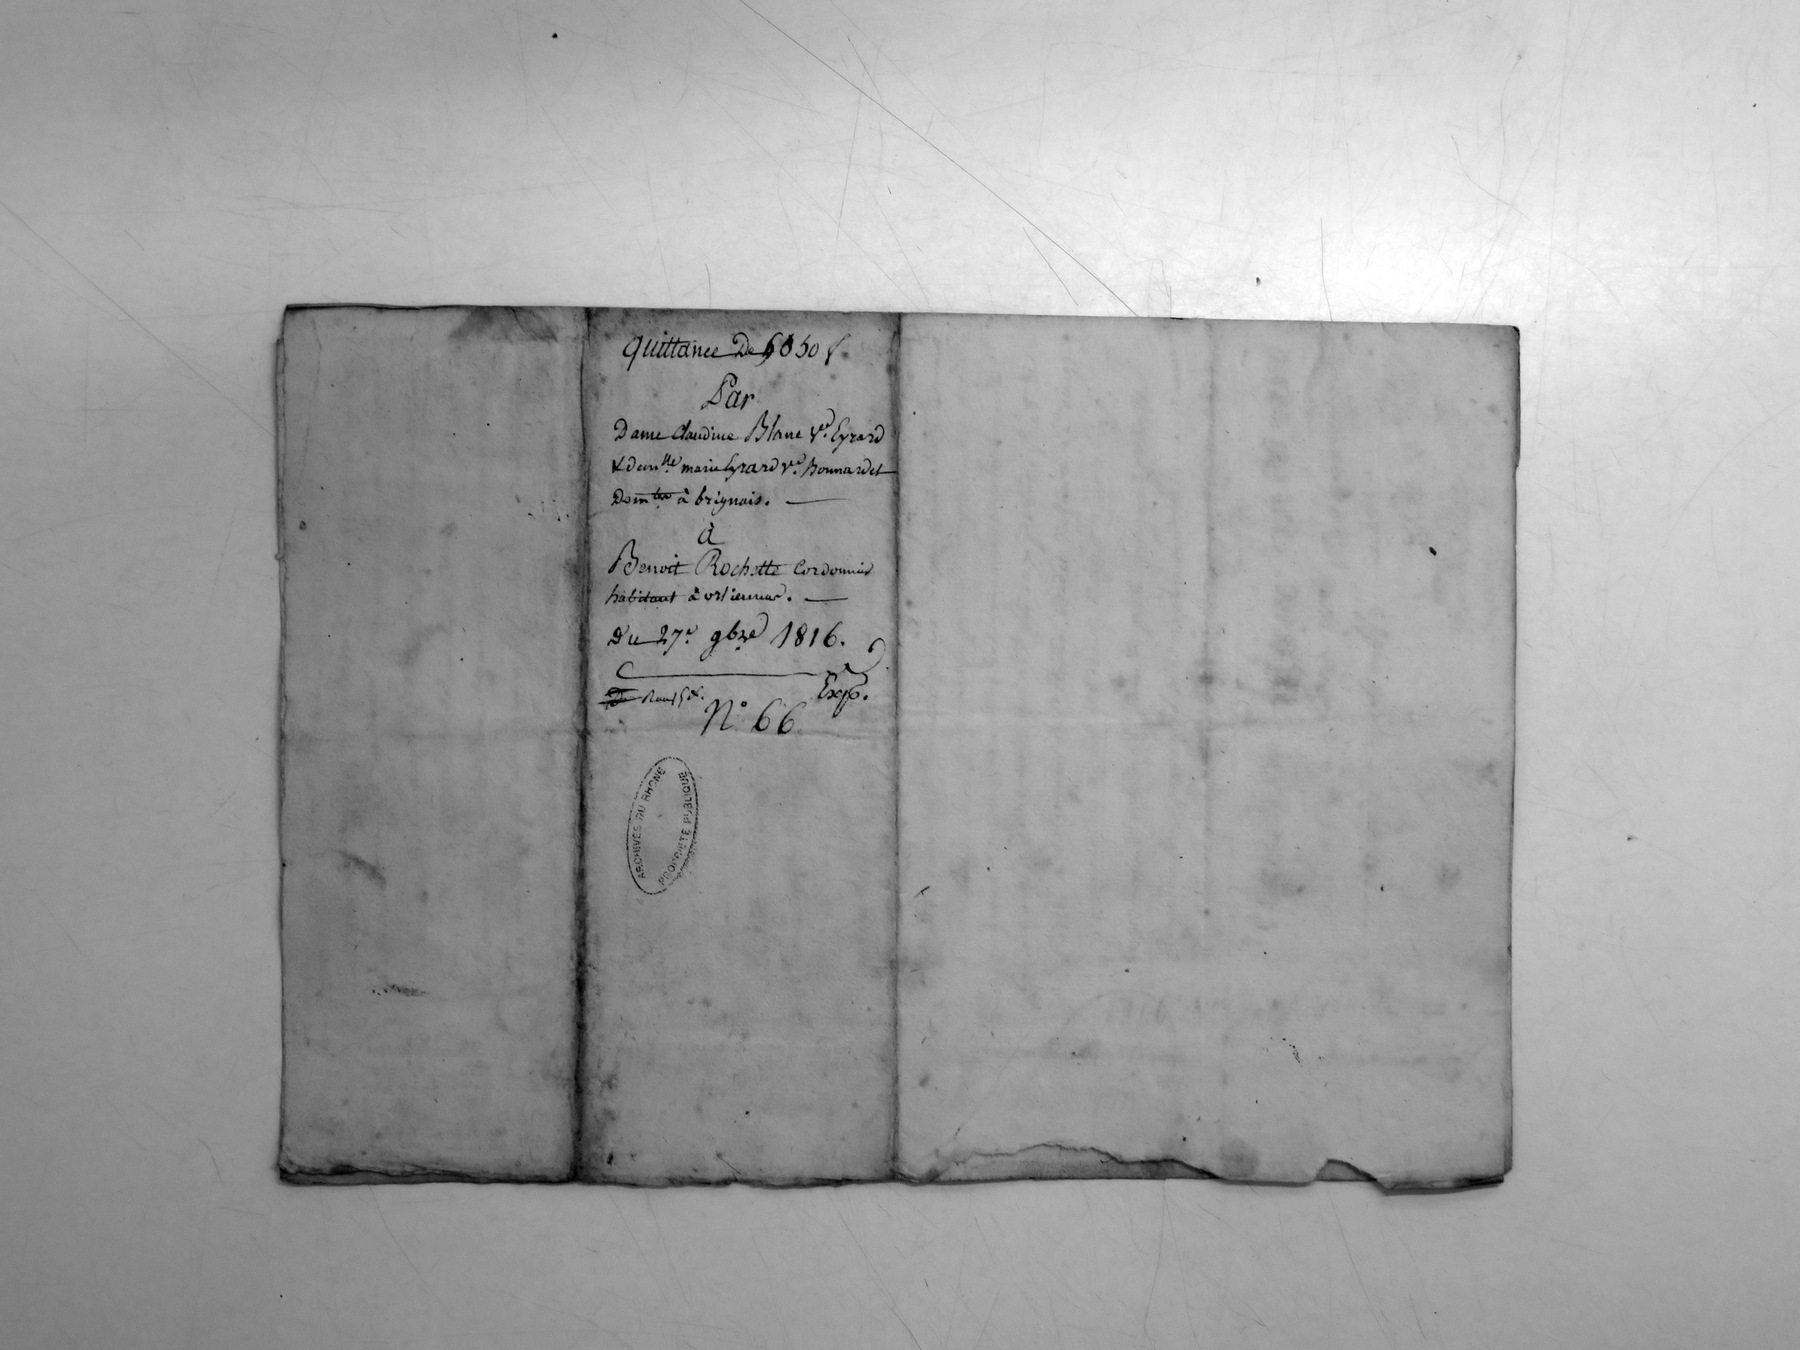 quittance De 6050 f.
Par
Dame Claudine Blanc v.e Eyrard
& dem.lle marie Eyrard v.e Bonnardet
Dom.les à brignais.
à
Benoit Rochette Cordonnier
habitant à orlienas.
du 27.e 9bre 1816.
Exp.
N.o 66
ARCHIVES DU RHONE
PROPRIÉTÉ PUBLIQUE